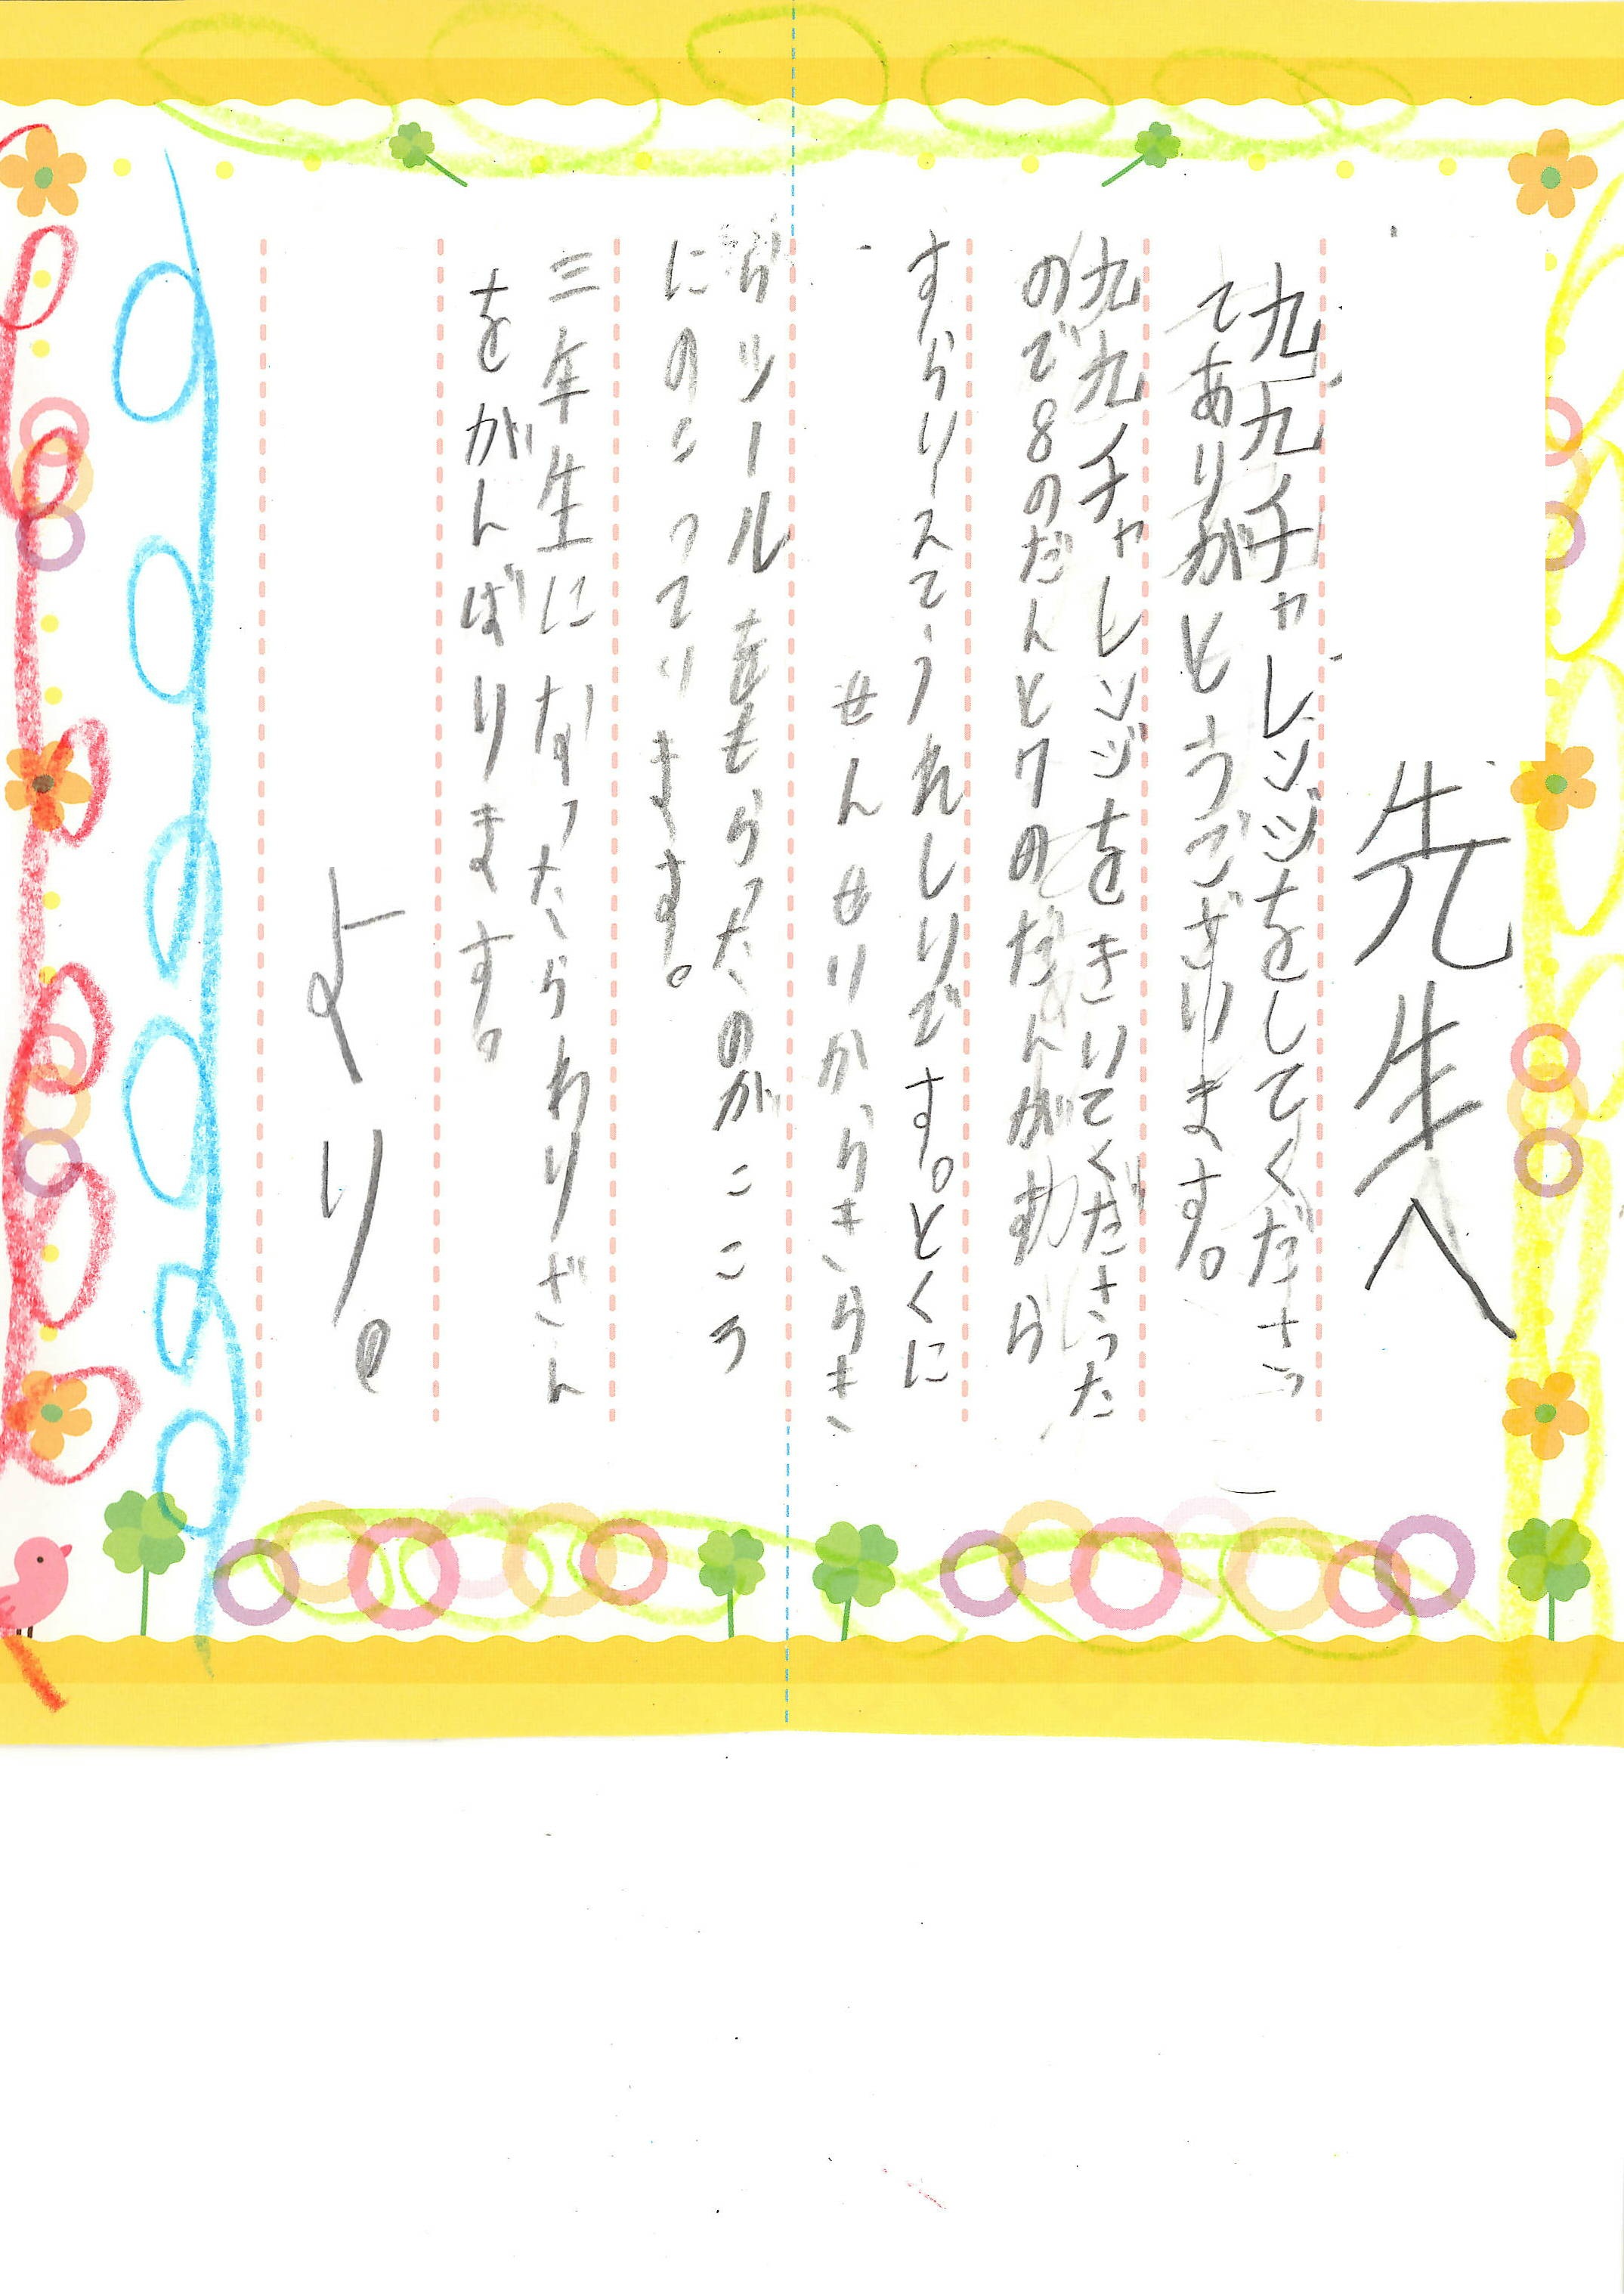 先生へ
九九チャレンジをしてくださっ
てありがとうございます。
九九チャレンジをきいてくださった
ので8のだんと7のだんが
すらりえてうれしいです。とくに
せんせいからきらき
らシールをもらったのがこころ
にのこっています。
三年生になったらわりざん
をがんばります。
より。